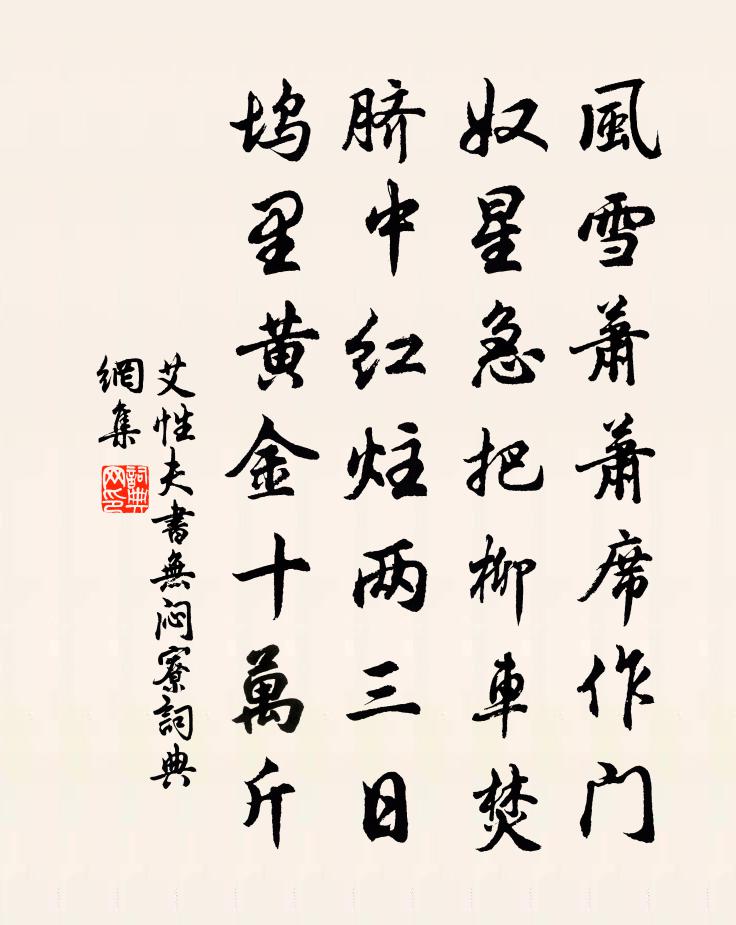 風雪蕭蕭席作门
奴星急把柳車焚
脐中红炷两三日
坞里黄金十萬斤
艾性夫書無闷寮詞典
網集
詞典
网印